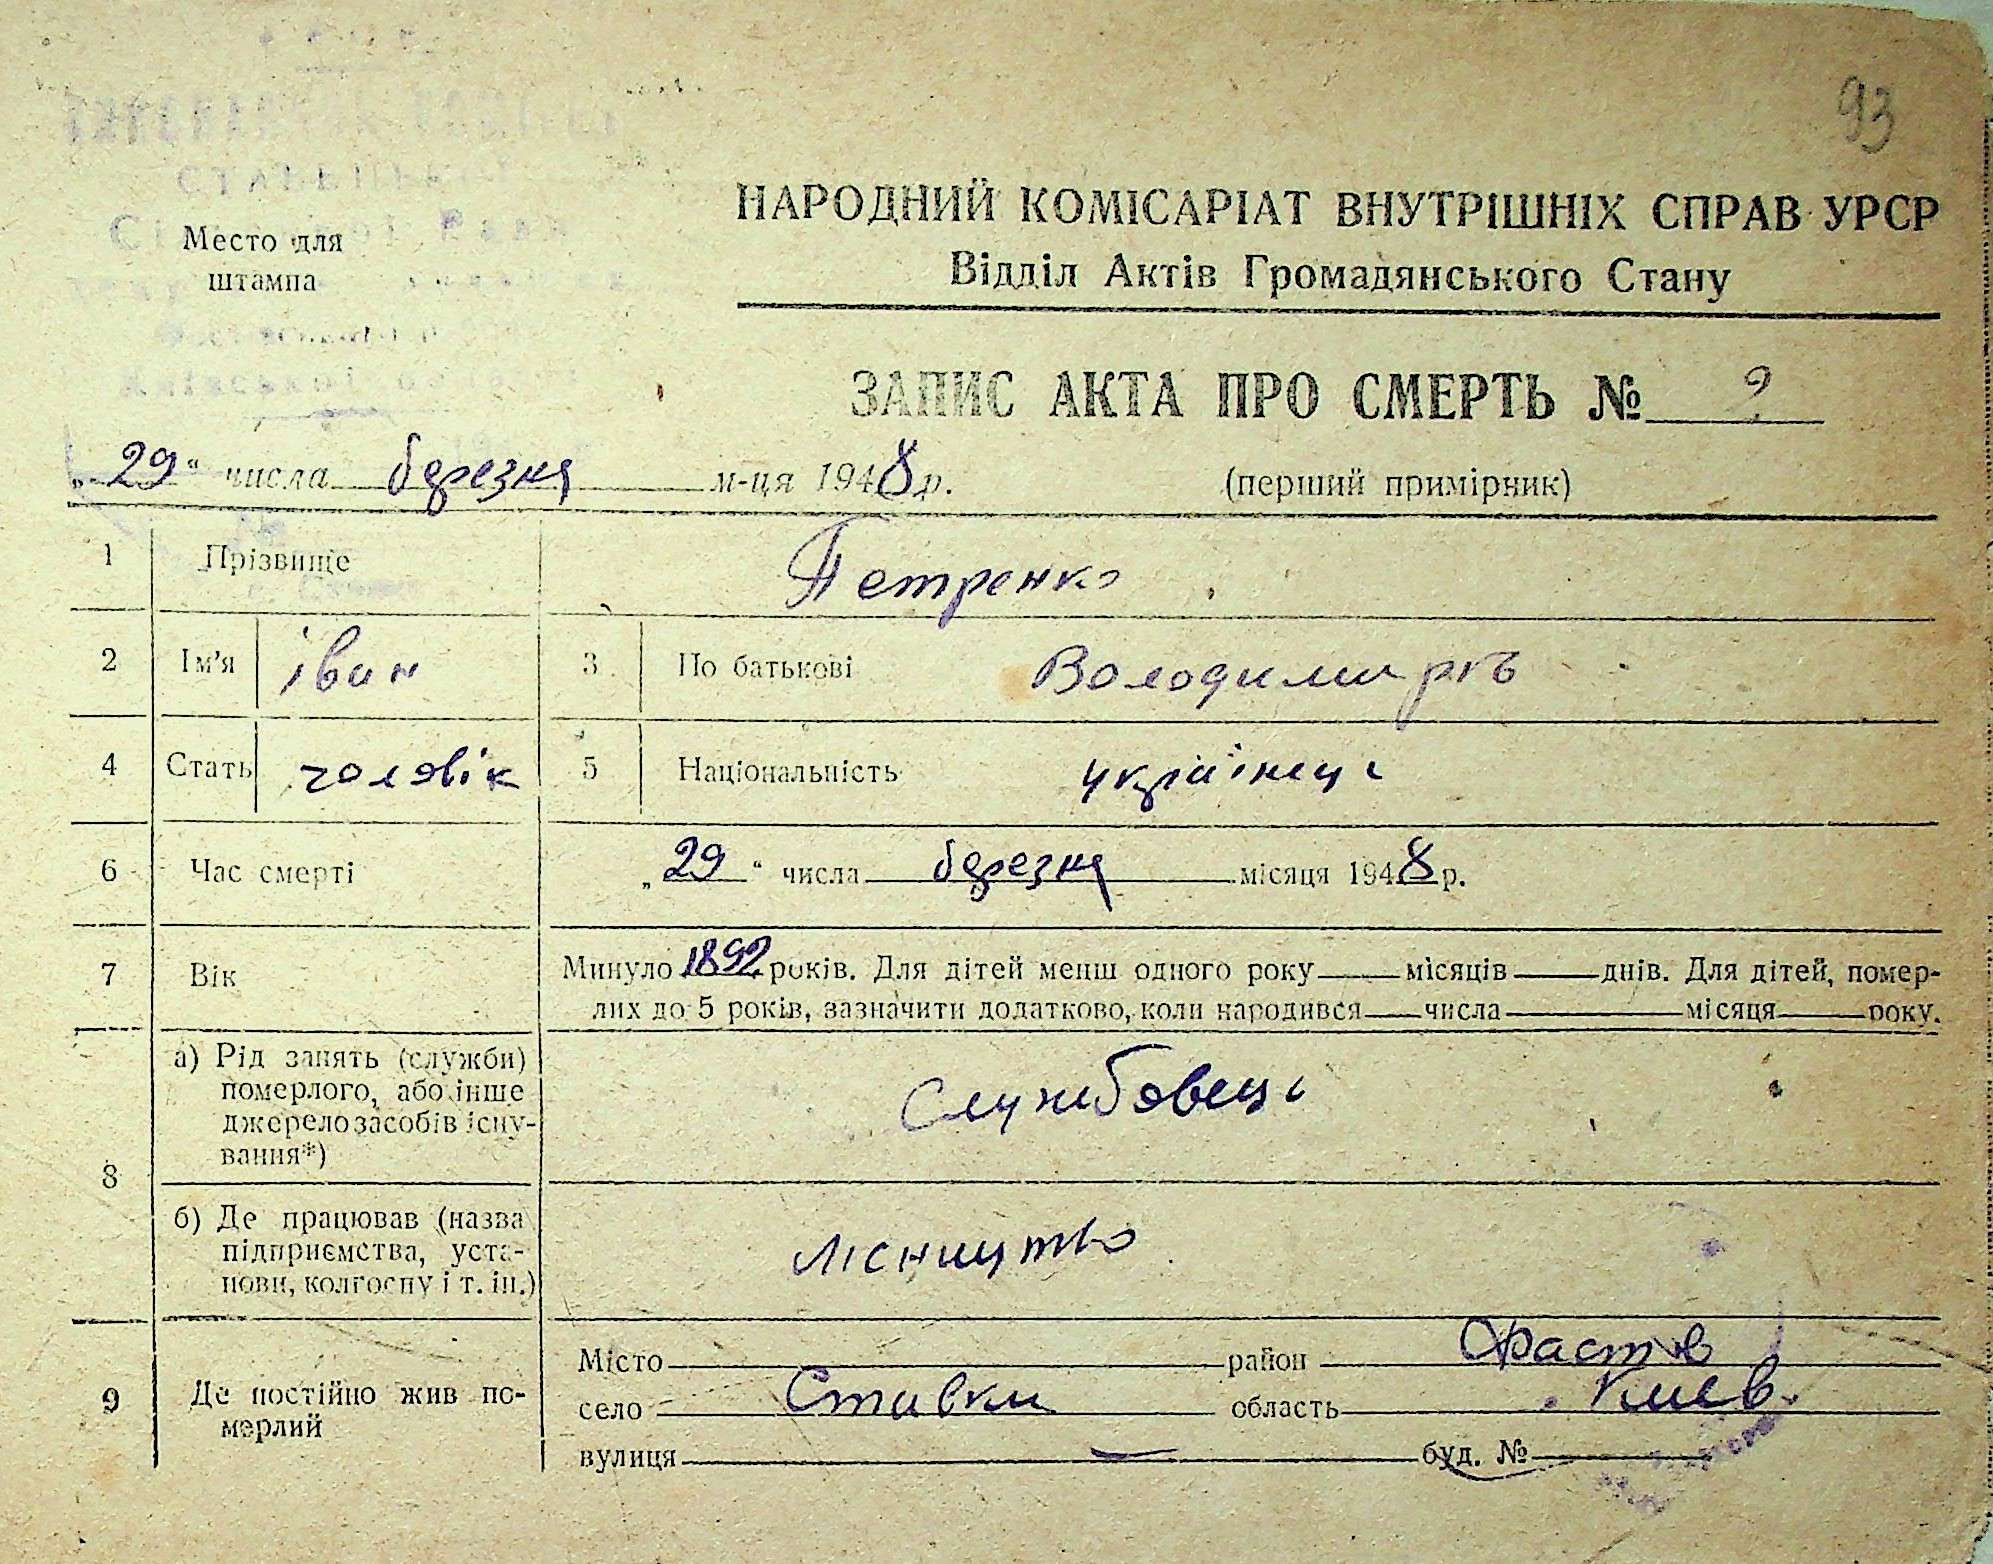 93
НАРОДНИЙ КОМІСАРІАТ ВНУТРІШНІХ СПРАВ УРСР
Відділ Актів Громадянського Стану
Место для
штампа
ЗАПИС АКТА ПРО СМЕРТЬ № 2
„29“ числа березня м-ця 1948 р.
(перший примірник)
1 Прізвище Петренко
2 Ім'я іван 3 По батькові
4 Стать чоловік 5 Національність українець
6 Час смерті „29“ числа березня місяця 1948 р.
7 Вік Минуло 1892 років. Для дітей менш одного року місяців днів. Для дітей, помер-
лих до 5 років, зазначити додатково, коли народився числа місяця року.
8 а) Рід занять (служби)
померлого, або інше
джерело засобів існу-
вання*)
Службовець
б) Де працював (назва
підприємства, уста-
нови, колгоспу і т. ін.)
лісництво
9 Де постійно жив по-
мерлий
Місто район Фастів
село Ставки область Киев.
вулиця — буд. №